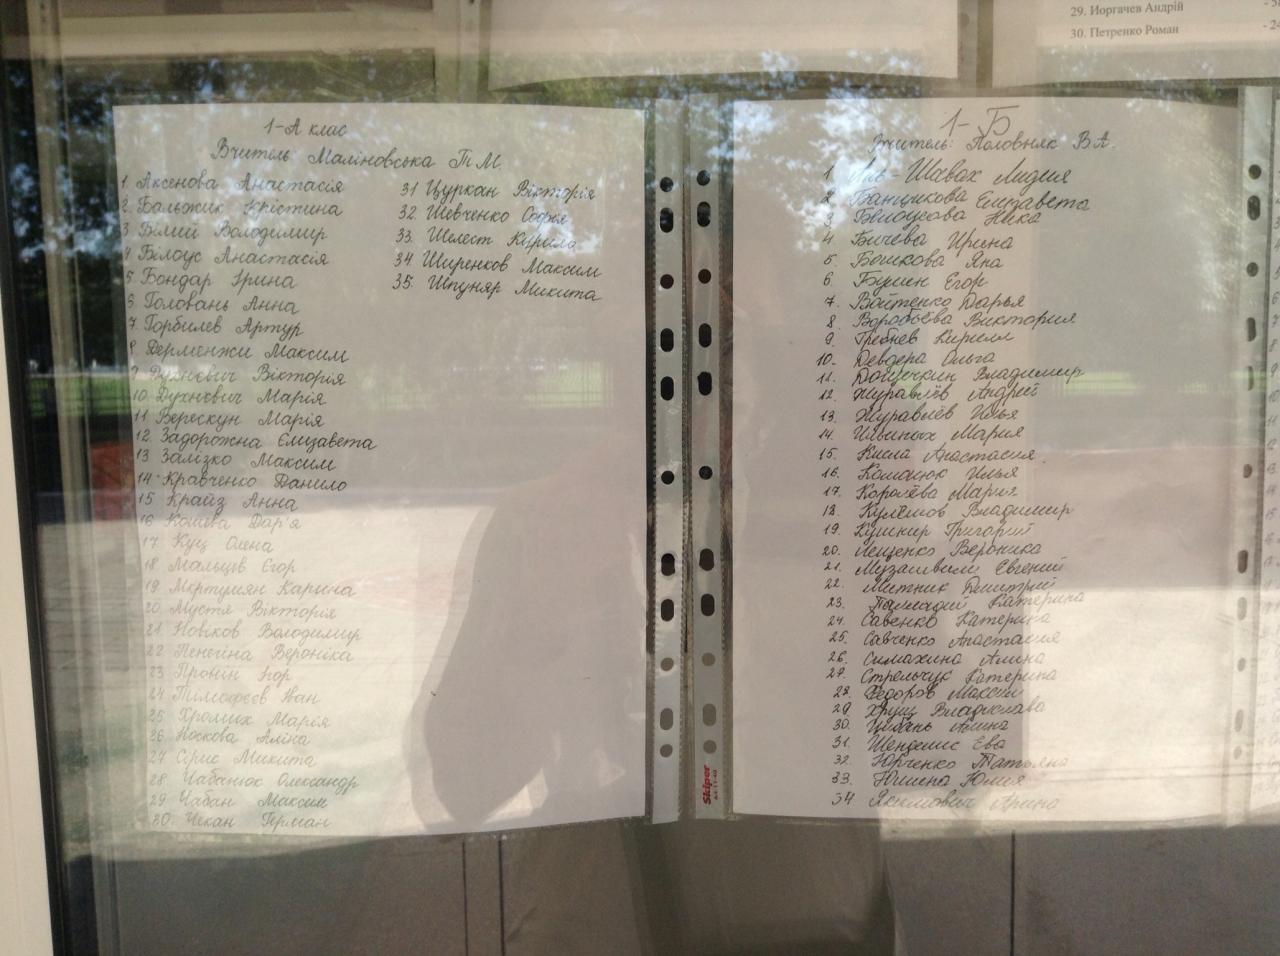 29. Йоргачев Андрій
30. Петренко Роман
1-А клас
Вчитель: Маліновська Т.М.
1. Аксенова Анастасія
2. Бальжик Крістина
3 Білий Володимир
4 Білоус Анастасія
5 Бондар Ірина
6. Головань Анна
7. Горбилев Артур
8. Дерменжи Максим
9. Духневич Вікторія
10 Духневич Марія
11 Верескун Марія
12. Задорожна Єлизавета
13 Залізко Максим
14 Кравченко Данило
15 Крайз Анна
16 Кошева Дар'я
17. Кущ Олена
18 Мальцев Єгор
19 Мкртумян Карина
20. Мустя Вікторія
21. Новіков Володимир
22 Пенєгіна Вероніка
23 Пронін Ігор
24 Тімофєєв Іван
25 Хромих Марія
26 Носкова Аліна
27 Сірик Микита
28 Чабанюк Олександр
29 Чабан Максим
30. Чекан Герман
31 Цуркан Вікторія
32. Шевченко Софія
33. Шелест Кирило
34. Ширенков Максим
35. Шпуняр Микита
1-Б
Вчитель: Половняк В.А.
1. Аль-Шавах Лидия
2. Банщикова Елизавета
3. Ника
4. Бичева Ирина
5. Бошкова Яна
6. Бушин Егор
7. Войтенко Дарья
8. Воробьёва Виктория
9. Гребнев Кирилл
10. Девдера Ольга
11. Дощечкин Владимир
12. Журавлёв Андрей
13. Журавлёв Илья
14. Ильиных Мария
15. Кила Анастасия
16. Команюк Илья
17. Королёва Мария
18. Кулешов Владимир
19. Кушнир Григорий
20. Лещенко Вероника
21. Евгений
22. Митник Дмитрий
23. Паламарий Катерина
24. Савенко Катерина
25. Савченко Анастасия
26. Симахина Алина
27. Стрельчук Катерина
28. Федоров Максим
29. Хрущ Владислава
30. Цибань Алина
31. Шенделис Ева
32. Юрченко Татьяна
33. Юшина Юлия
34 Якимович Арина
Skiper